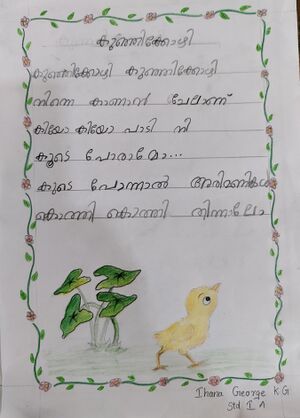 കുഞ്ഞിക്കോഴി
കുഞ്ഞിക്കോഴി കുഞ്ഞിക്കോഴി
നിന്നെ കാണാൻ ചേലാണ്
കിയോ കിയോ പാടി നീ
കൂടെ പോരാമോ...
കൂടെ പോന്നാൽ അരിമണികൾ
കൊത്തി കൊത്തി തിന്നാലോ
Ihana George K G
Std I A